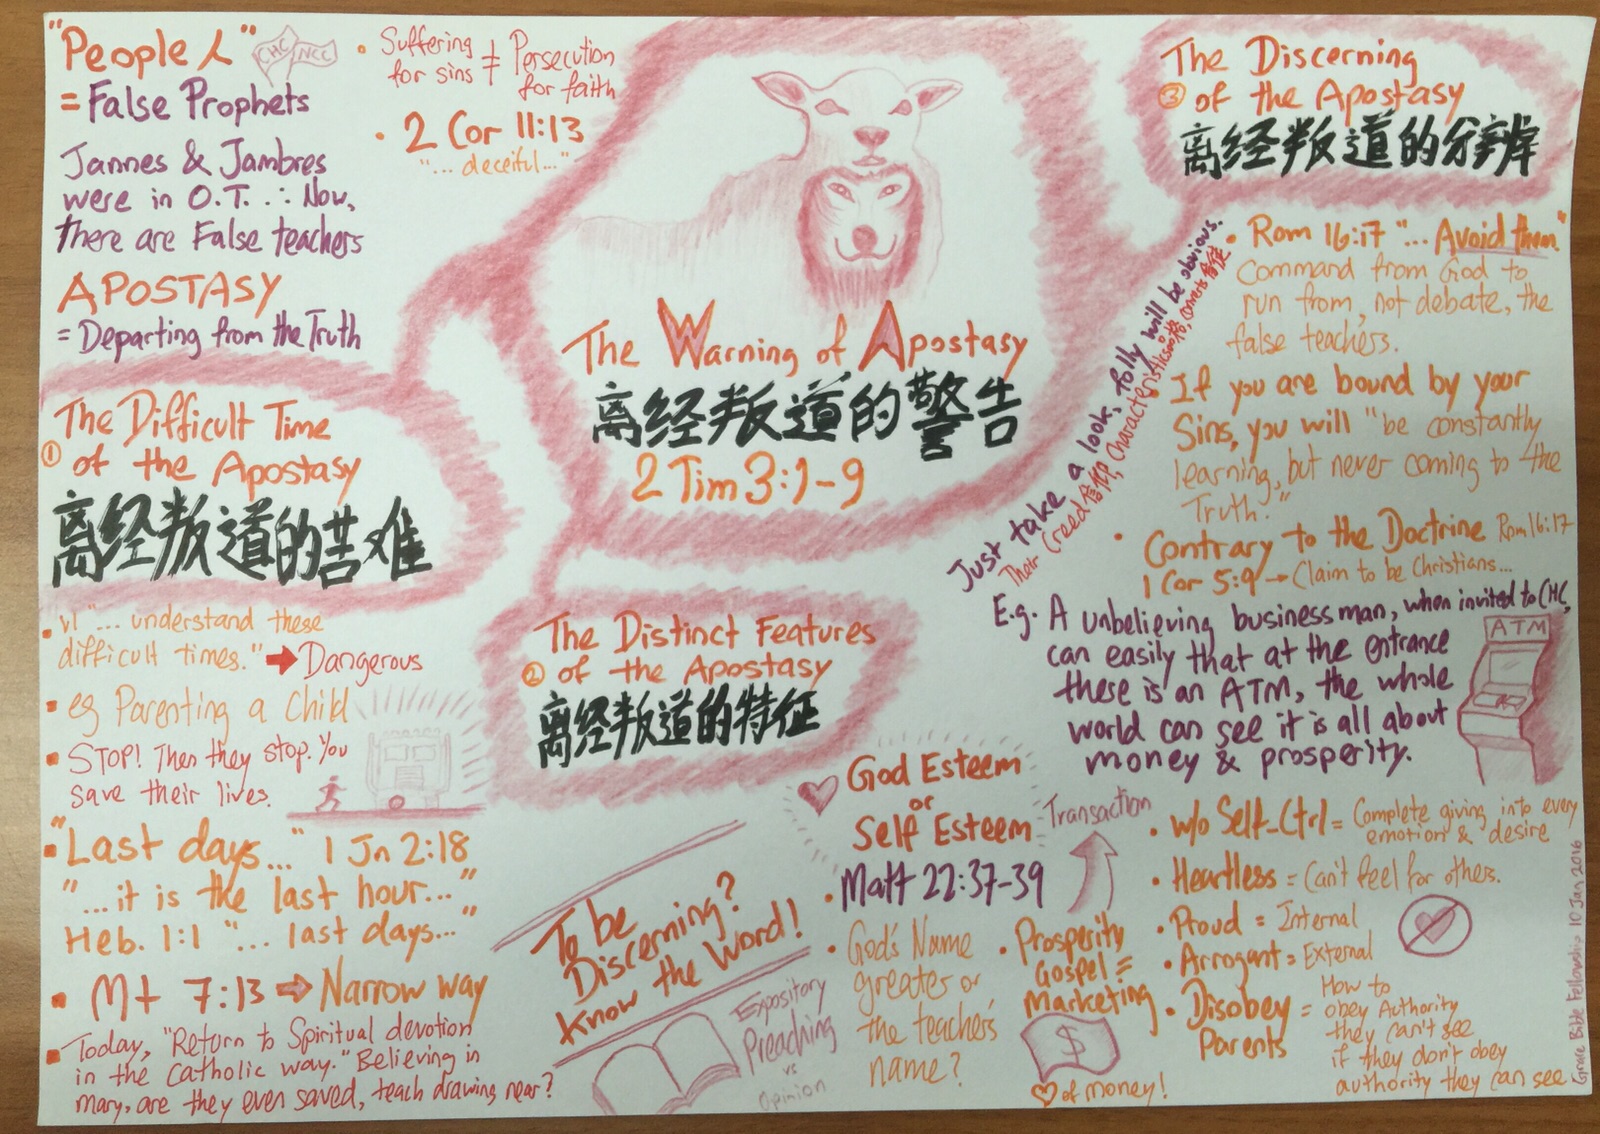 "People人"
CHC NCC
= False Prophets
Jannes & Jambres
were in O.T. ∴ Now,
there are False teachers
APOSTASY
= Departing from the Truth
• Suffering for sins ≠ Persecution for faith
• 2 Cor 11:13
"... deceiful..."
The Warning of Apostasy
离经叛道的警告
2 Tim 3:1-9
The Difficult Time
① of the Apostasy
离经叛道的苦难
• v1 "... understand these
difficult times." ➡ Dangerous
• eg Parenting a Child
• STOP! Then they stop. You
save their lives.
• "Last days..." 1 Jn 2:18
"...it is the last hour..."
Heb. 1:1 "... last days..."
• Mt 7:13 ⇨ Narrow way
• Today, "Return to Spiritual devotion
in the Catholic way." Believing in
mary, are they even saved, teach drawing near?
The Distinct Features
② of the Apostasy
离经叛道的特征
To be
Discerning?
Know the Word!
Expository
Preaching
vs
Opinion
God Esteem
or
Self Esteem
• Matt 22:37-39
• God's Name
greater or
the teacher's
name?
Transaction
• Prosperity
Gospel =
Marketing
$
♡ of money!
• w/o Self-Ctrl = Complete giving into every
emotion & desire
• Heartless = Can't feel for others.
• Proud = Internal
• Arrogant = External
• Disobey
Parents
= How to
obey Authority
they can't see
if they don't obey
authority they can see.
The Discerning
③ of the Apostasy
离经叛道的分辨
Just take a look, folly will be obvious.
Their Creed信仰, Characteristics品格, Converts信徒
• Rom 16:17 "... Avoid them."
Command from God to
run from, not debate, the
false teachers.
If you are bound by your
Sins, you will "be constantly
learning, but never coming to the
Truth."
• Contrary to the Doctrine Rom 16:17
1 Cor 5:9 → Claim to be Christians...
E.g. A unbelieving business man, when invited to CHC,
can easily that at the entrance
there is an ATM, the whole
world can see it is all about
money & prosperity.
ATM
Grace Bible Fellowship 10 Jan 2016